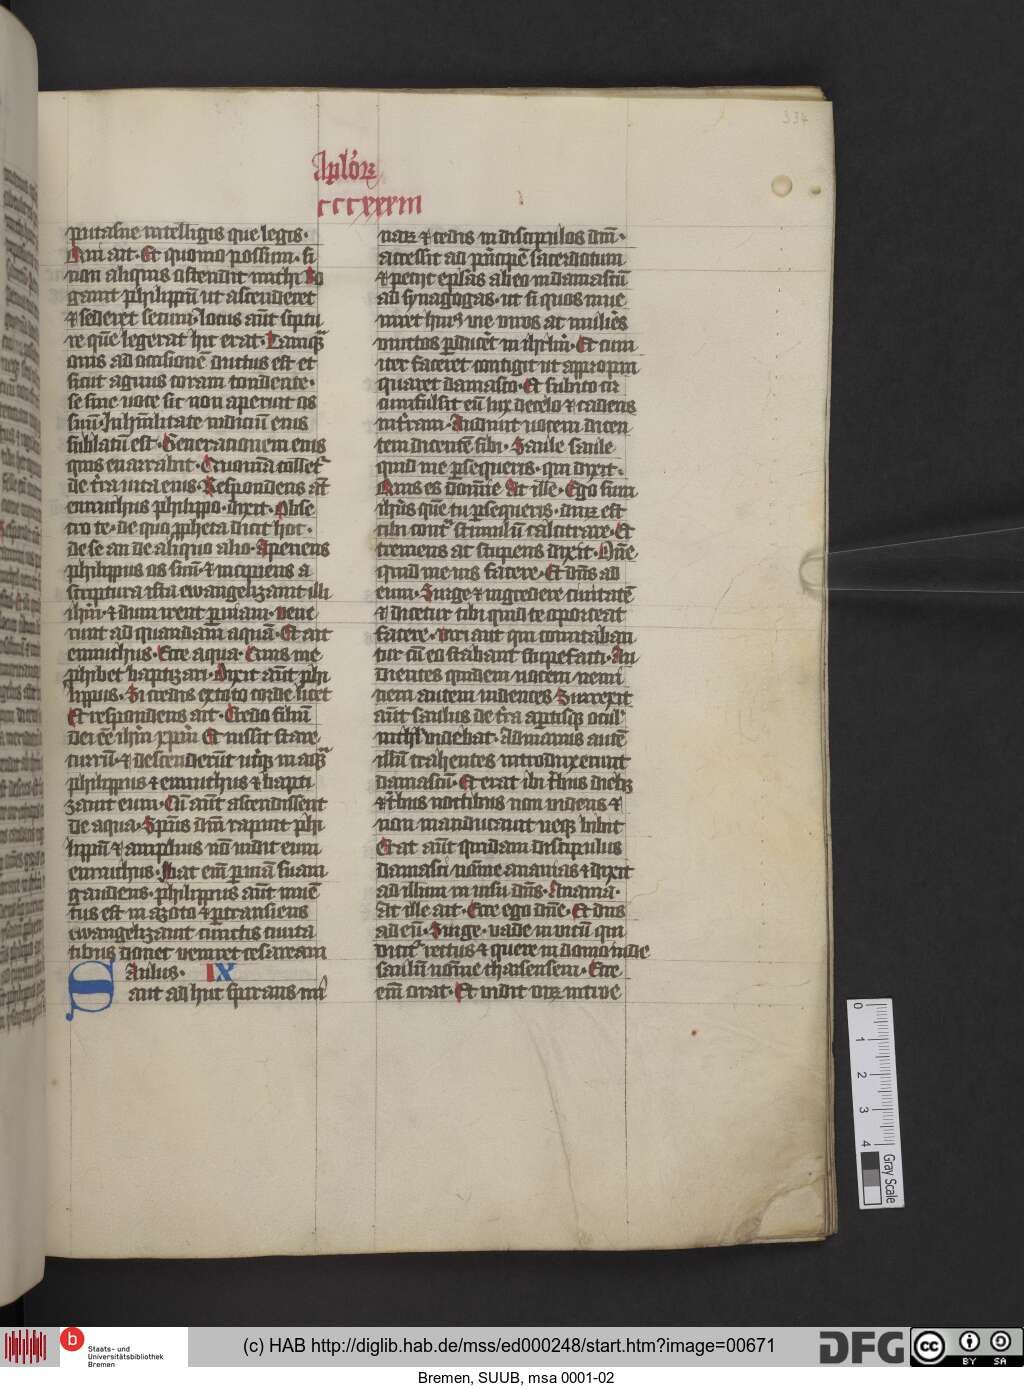 Aplo᷑ꝝ
cccxxxiii
putasne intelligis que legis·
Qui ait· Et quomo possum· si
non aliquis ostendit michi Ro
gauit philippū ut ascenderet
⁊ sederet secum· locus aūt sc̄ptu
re quē legerat hic erat· Tamqᷓ
ouis ad occisionē ductus est et
sicut agnus coram tondente·
se sine uoce sic non aperuit os
suū· In hūilitate iudiciū eius
sublatū est· Generacionem eius
quis enarrabit· Qm̄ tollet᷑
de t̄ra uita eius· Respondens aūt
eunuchus philippo· dixit· Obse
cro te· de quo ꝓpheta dicit hoc·
de se an de aliquo alio· Aperiens
philippus os suū· ⁊ incipiens a
scriptura ista ewangelizauit illi
ihm̄· ⁊ dum irent ꝑ uiam· uene
runt ad quandam aquā· Et ait
eunuchus· Ecce aqua· Quis me
ꝓhibet baptizari· Dixit aūt phi
lippus· Si credis ex toto corde licet
Et respondens ait· Credo filiū
dei eē ihm̄ xpm̄ Et iussit stare
currū· ⁊ descenderūt utqꝫ in aqᷓ
philippus ⁊ eunuchus ⁊ bapti
zauit eum· Cū aūt ascendissent
de aqua· Spūs dn̄i rapuit phi
lippū ⁊ amplius nō uidit eum
eunuchus· Ibat eīn ꝑ uiā suam
gaudens· philippus aūt inuē
tus est in azoto ⁊ ꝑtransiens
ewangelizauit cunctis ciuita
tibus donec ueniret cesaream
Saulus· IX
aut ad huc spirans mi
naꝝ ⁊ cedis in discipulos dn̄i·
accessit ad pn̄cipē sacerdotum
⁊ petijt ep̄las ab eo in damascū
ad synagogas· ut si quos inue
niret huiꝰ uie uiros ac mulieres
uinctos ꝑduceret in ihrlm̄· Et cum
iter faceret contigit ut apropin
quaret damasco· Et subito cir
cumfulsit eū lux de celo ⁊ cadens
in t̄ram· Audiuit uocem dicen
tem dicentē sibi· Saule saule
quid me ꝑsequeris· qui dixit·
Quis es domine At ille· Ego sum
ihūs quē tu ꝑsequeris· duꝝ est
tibi cont᷑ stimulū calcitrare· Et
tremens ac stupens dixit· Dn̄e
quid me uis facere· Et dn̄s ad
eum· Surge ⁊ ingredere ciuitatē
⁊ dicetur tibi quid te oporteat
facere· Viri aut qui comitaban
tur cū eo stabant stupefacti· Au
dientes quidem uocem nemi
nem autem uidentes Surrexit
aūt saulus de t̄ra aꝑtisqꝫ oculꝰ
nichil uidebat· Ad manus autē
illū trahentes introduxerunt
damascū· Et erat ibi t̄bus diebꝫ
⁊ t̄bus noctibus non uidens ⁊
non manducauit neqꝫ bibit
Erat aūt quidam discipulus
damasci nōine ananias ⁊ dixit
ad illum in uisu dn̄s· Anania·
At ille ait· Ecce ego dn̄e· Et dn̄s
ad eū· Surge· uade in uicū qui
dicit᷑ rectus ⁊ quere in domo iude
saulū nōine tharsensem· Ecce
enī orat· Et uidit uiꝝ
334
0 1 2 3 4
Gray Scale
b Staats- und Universitätsbibliothek Bremen
(c) HAB http://diglib.hab.de/mss/ed000248/start.htm?image=00671
DFG
cc BY SA
Bremen, SUUB, msa 0001-02